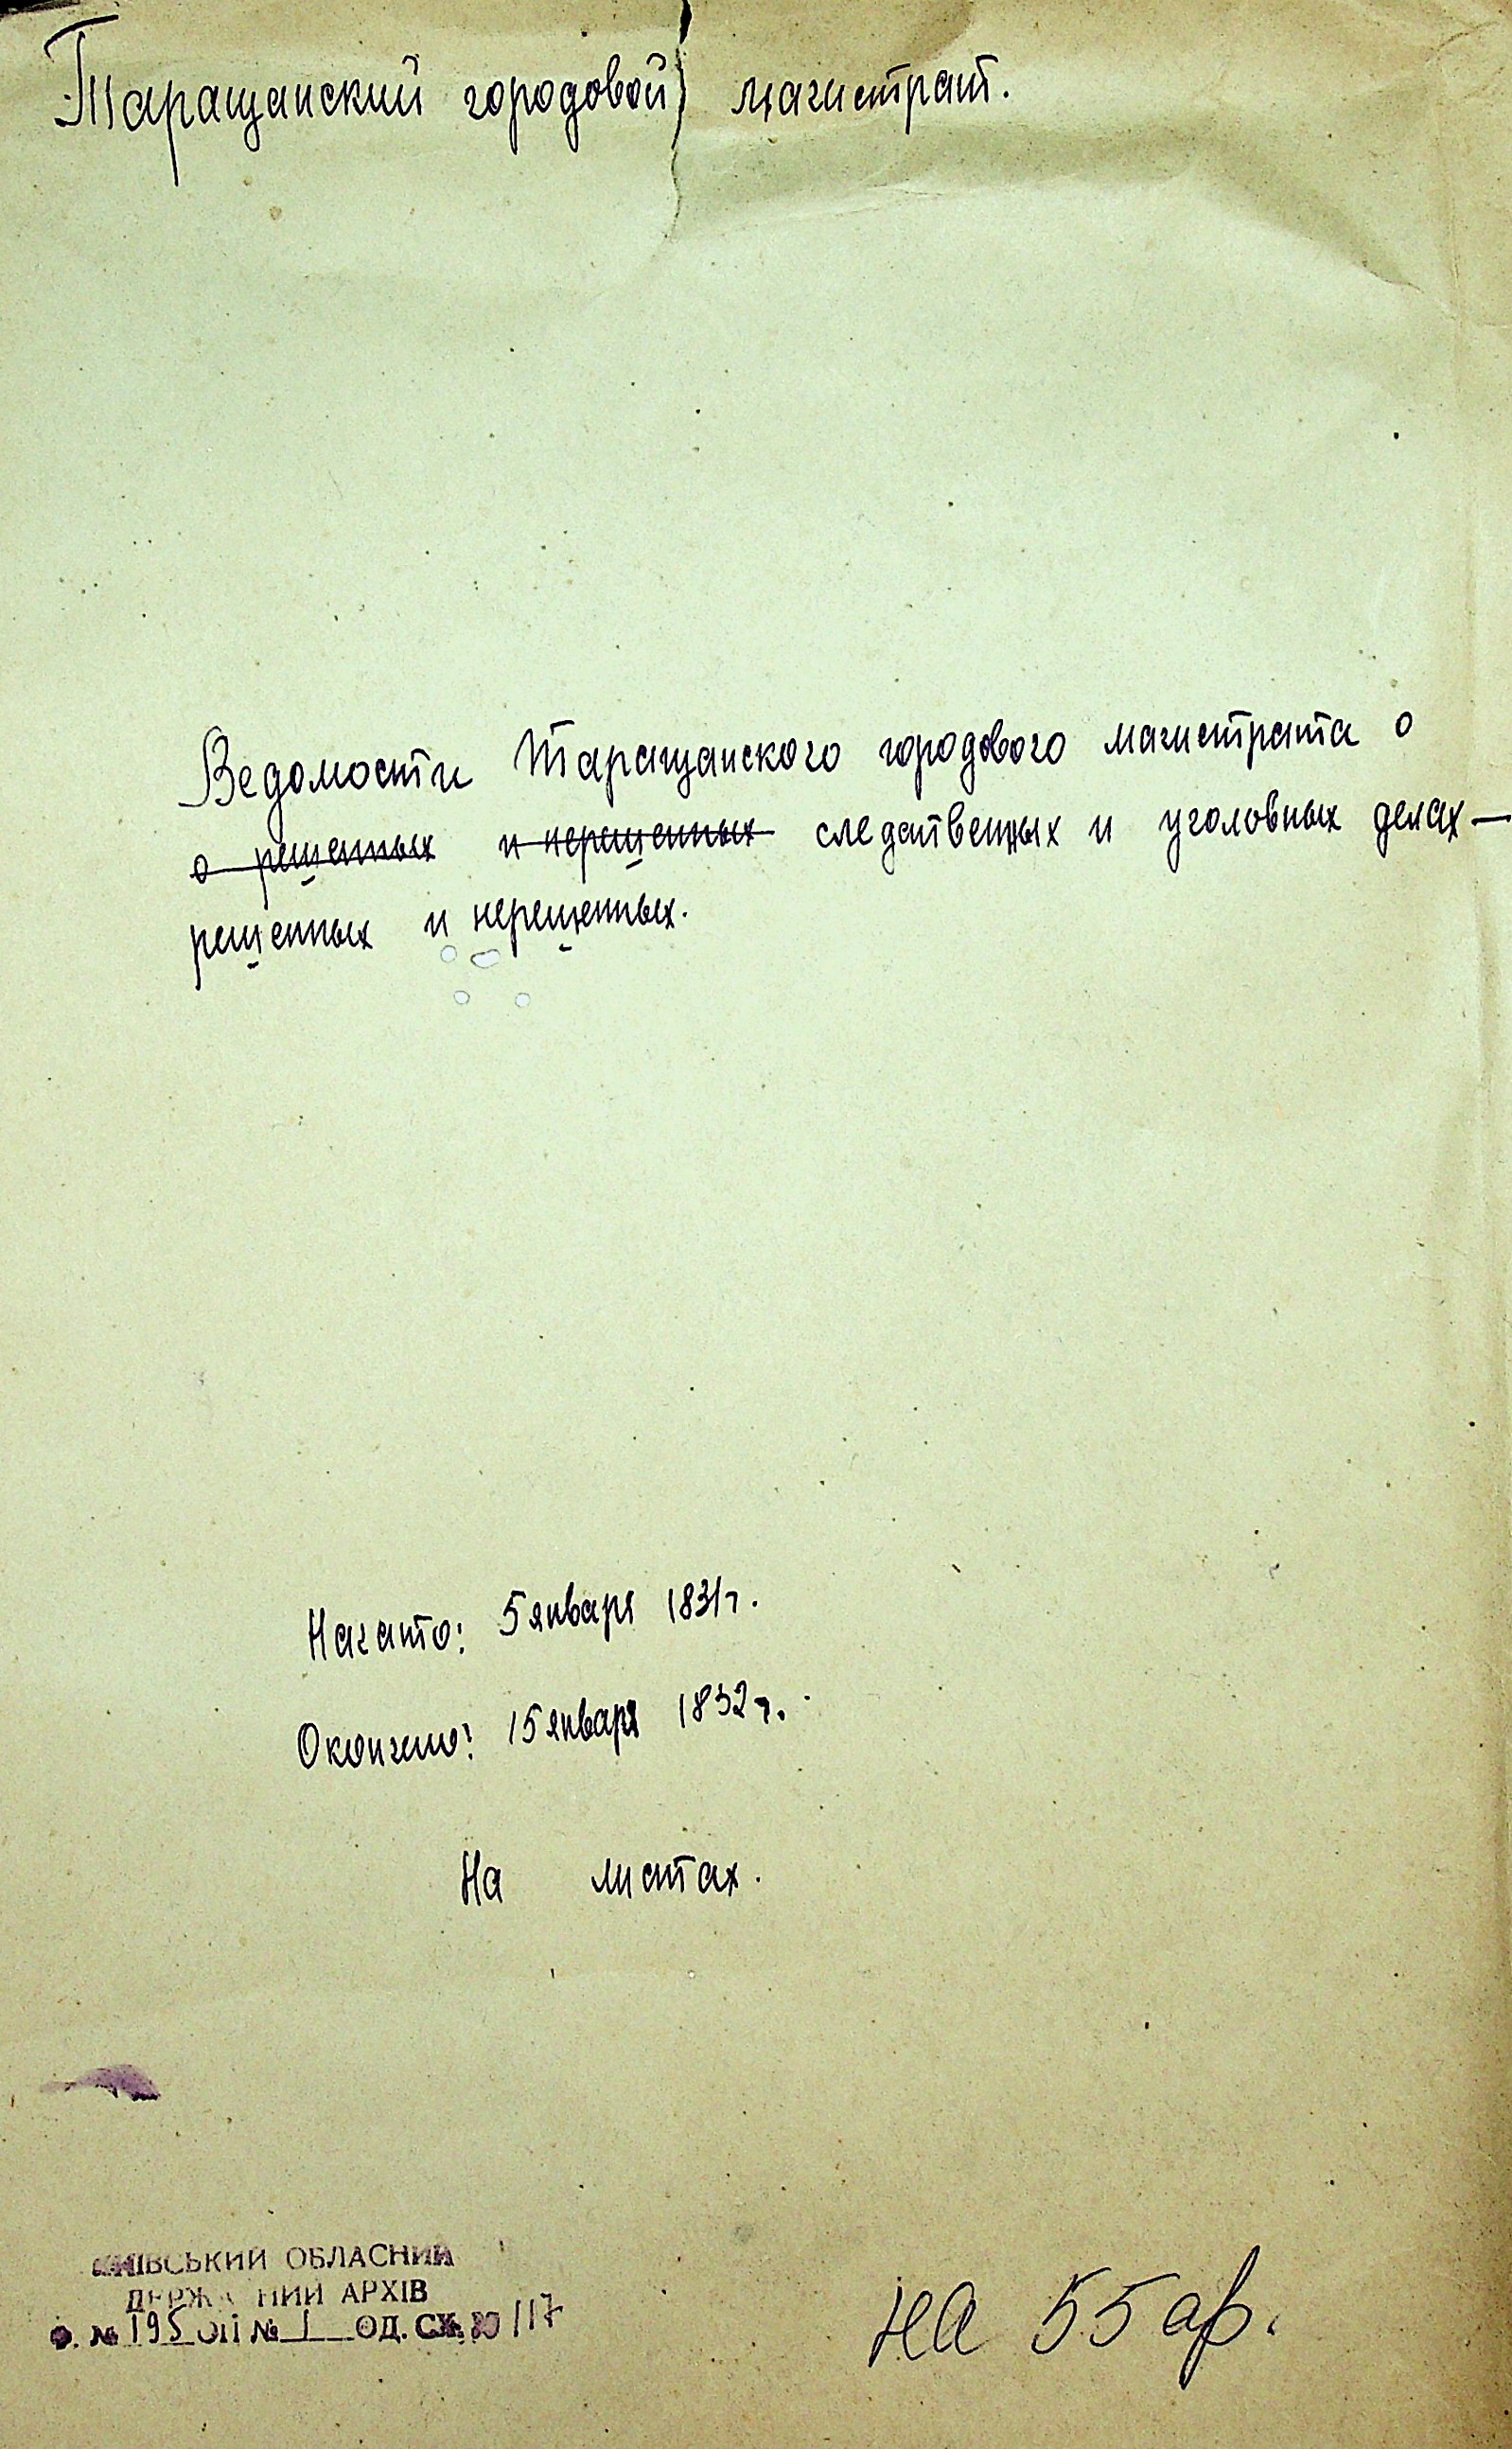 Таращанский городовой магистрат.
Ведомости Таращанского городового магистрата о
о решенных и нерешенных следственных и уголовных делах —
решенных и нерешенных.
Начато: 5 января 1831 г.
Окончено: 15 января 1832 г.
На листах.
КИЇВСЬКИЙ ОБЛАСНИЙ
ДЕРЖАВНИЙ АРХІВ
Ф. № 195 ОП № 1 ОД. СХ. 117
на 55 ар.